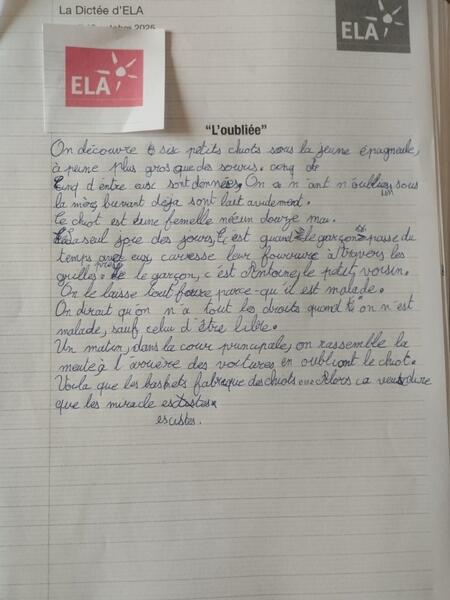 La Dictée d'ELA
ELA
ELA
"L'oubliée"
On découvre six petits chiots sous la jeune épagneule,
à peine plus gros que des souris. cinq de
Cinq d'entre eux sont données. On a n'ant n'oublier un sous
la mère buvant deja sont lait avidement.
Le chiot est une femelle née un douze mai.
La seul joie des jours, c'est quand le garçon passe du
temps avec eux caresse leur fourrure à travers les
grilles près le garçon, c'est Antoine, le petit voisin.
On le laisse tout faire parce-qu'il est malade.
On dirait qu'on n a tout les droits quand on n'est
malade, sauf celui d'être libre.
Un matin, dans la cour principale, on rassemble la
meute à l'arrière des voitures en oubliont le chiot.
Voila que les baskets fabrique des chiots Alors ca veut dire
que les miracle
escistes.